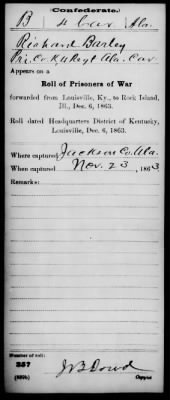 Confederate.
B 4 Cav Ala.
Richard Barley
Pri. Co. K, 4 Regt Ala. Cav.
Appears on a
Roll of Prisoners of War
forwarded from Louisville, Ky., to Rock Island,
Ill., Dec. 6, 1863.
Roll dated Headquarters District of Kentucky,
Louisville, Dec. 6, 1863.
Where captured Jackson Co. Ala.
When captured Nov. 23, 1863
Remarks:
Number of roll:
257
(639b) Copyist